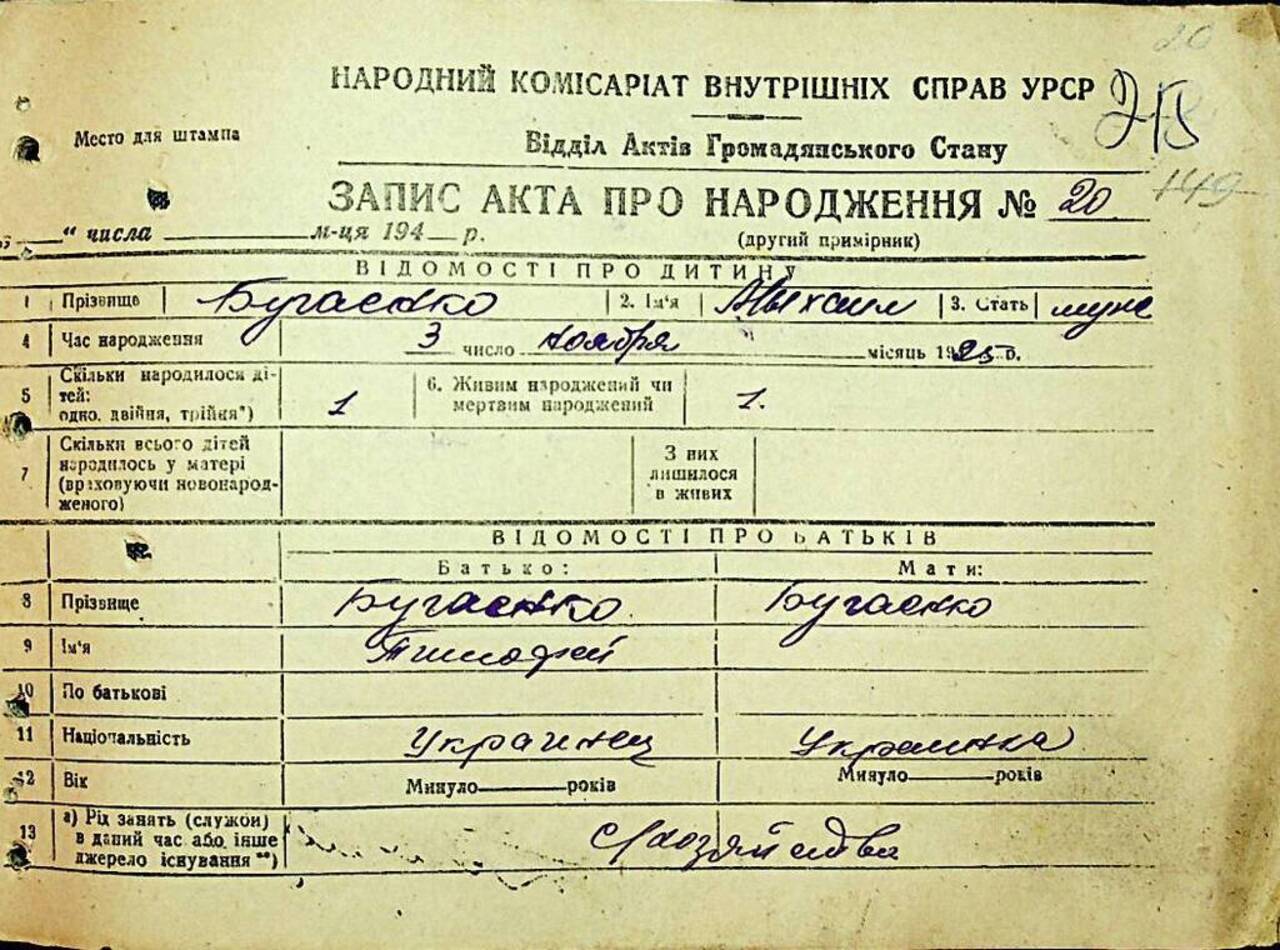 20
НАРОДНИЙ КОМІСАРІАТ ВНУТРІШНІХ СПРАВ УРСР
Место для штампа
Відділ Актів Громадянського Стану
ЗАПИС АКТА ПРО НАРОДЖЕННЯ № 20
149
„ “ числа м-ця 194 р.
(другий примірник)
ВІДОМОСТІ ПРО ДИТИНУ
1 Прізвище Бугаенко 2. Ім'я Михаил 3. Стать муж
4 Час народження 3 число ноября місяць 1925 р.
5 Скільки народилося ді-
тей:
одно, двійня, трійня*) 1
6. Живим народжений чи
мертвим народжений 1.
7 Скільки всього дітей
народилось у матері
(враховуючи новонарод-
женого)
З них
лишилося
в живих
ВІДОМОСТІ ПРО БАТЬКІВ
Батько: Мати:
8 Прізвище Бугаенко Бугаенко
9 Ім'я Тимофей
10 По батькові
11 Національність Украинец Украинка
12 Вік Минуло років Минуло років
13 а) Рід занять (служби)
в даний час або інше
джерело існування**) с/хозяйства